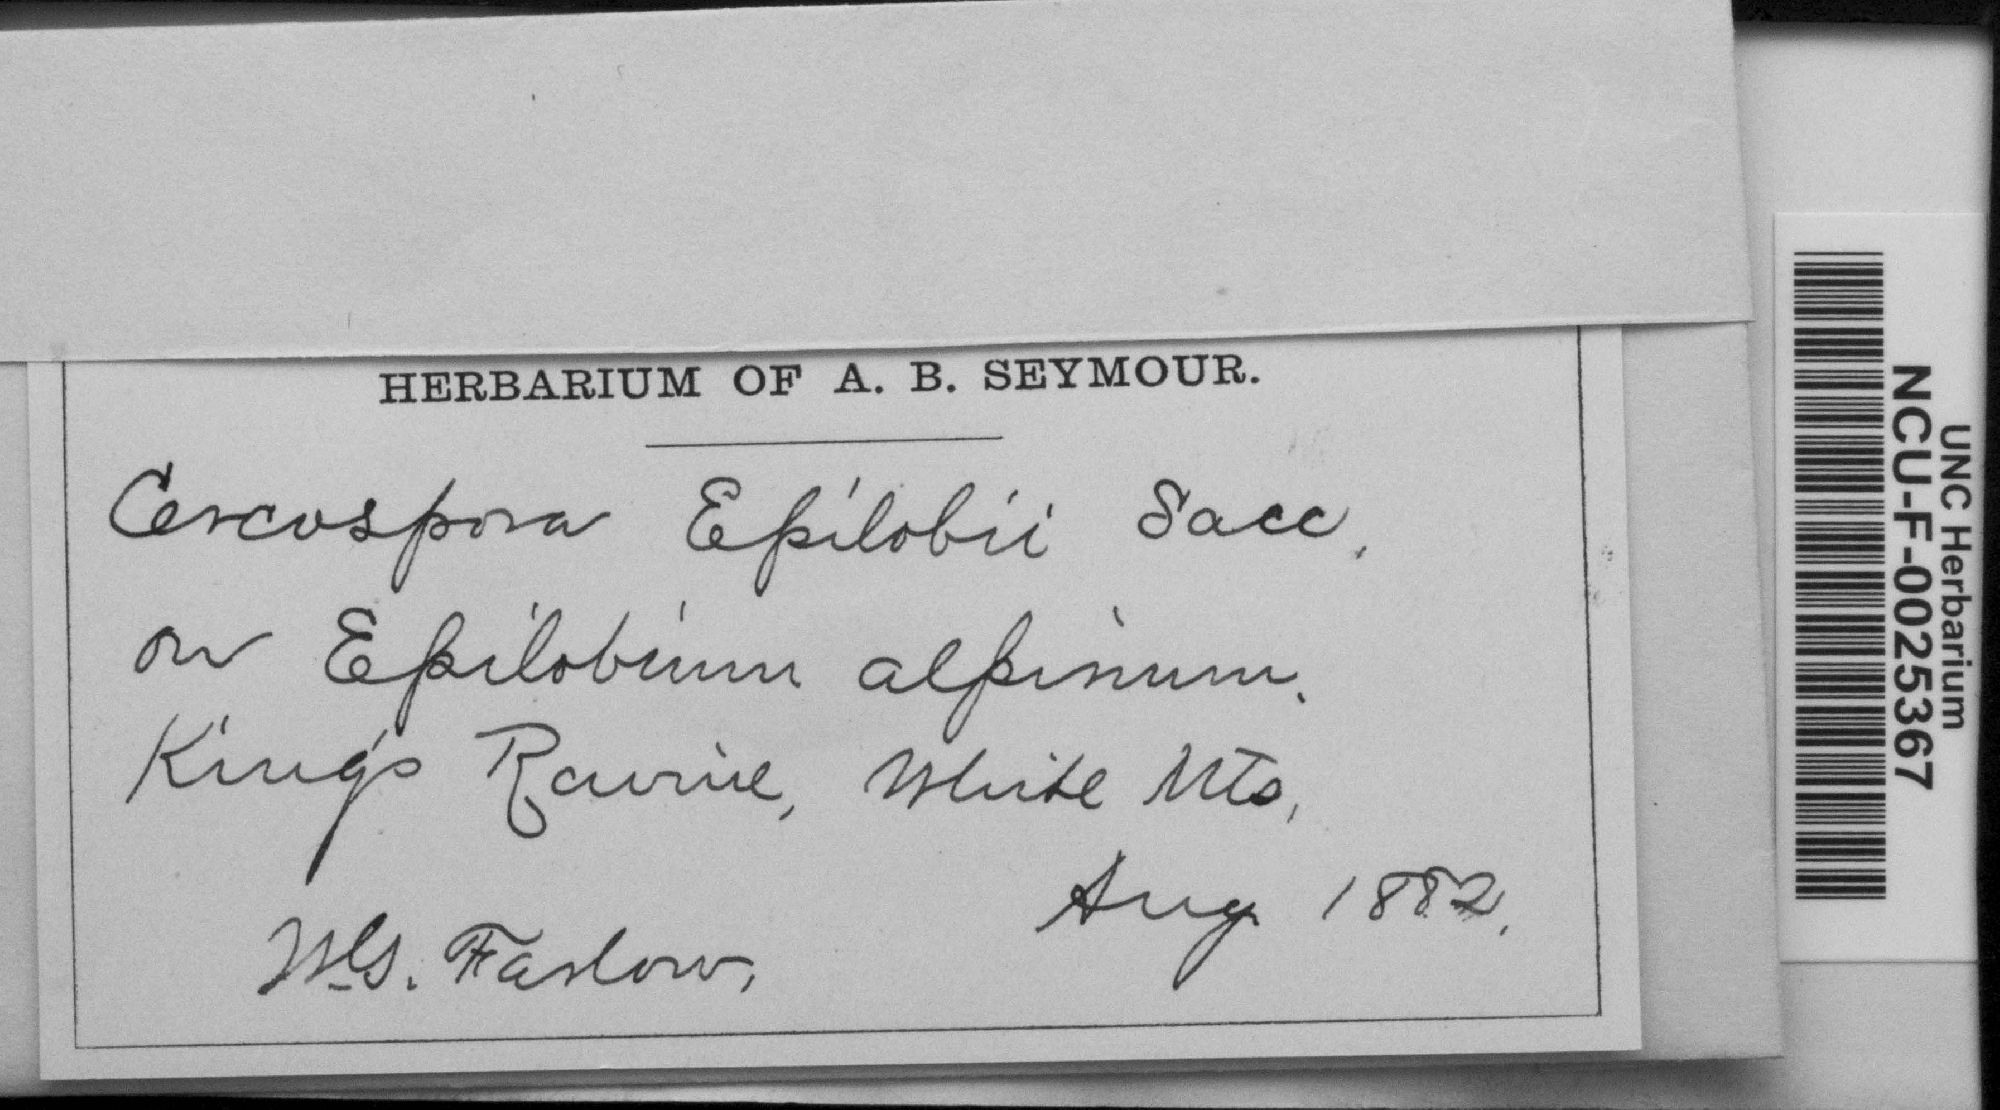 HERBARIUM OF A. B. SEYMOUR.
Cercospora Epilobii Sacc.
on Epilobium alpinum.
King's Ravine, White Mts,
Aug 1882.
W.G. Farlow,
UNC Herbarium
NCU-F-0025367